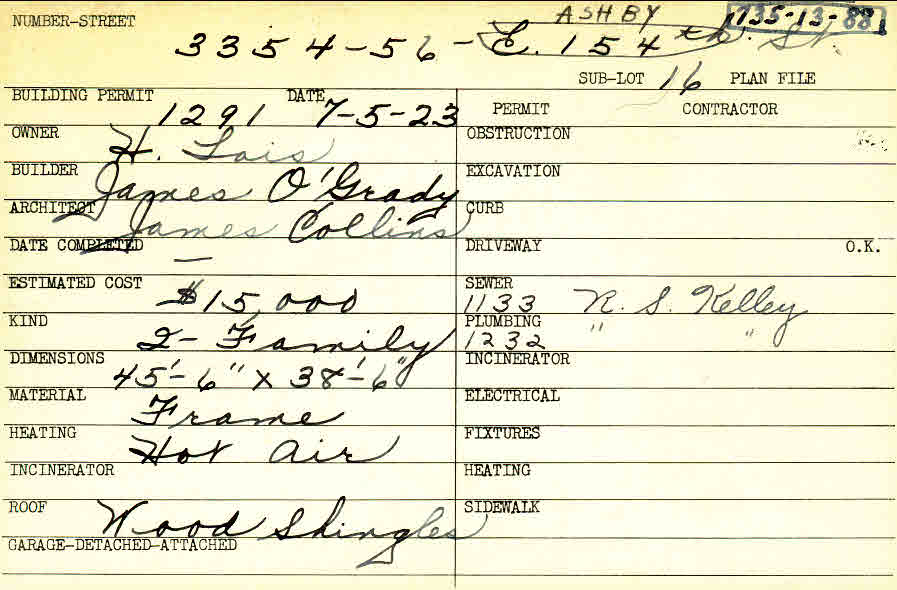 NUMBER-STREET ASHBY 735-13-88
3354-56 - E. 154th St.
SUB-LOT 16 PLAN FILE
BUILDING PERMIT 1291 DATE 7-5-23 PERMIT CONTRACTOR
OWNER H. Lais OBSTRUCTION
BUILDER James O'Grady EXCAVATION
ARCHITECT James Collins CURB
DATE COMPLETED — DRIVEWAY O.K.
ESTIMATED COST $15,000 SEWER 1133 R. S. Kelley
KIND 2-Family PLUMBING 1232 " "
DIMENSIONS 45'-6" X 38'-6" INCINERATOR
MATERIAL Frame ELECTRICAL
HEATING Hot Air FIXTURES
INCINERATOR HEATING
ROOF Wood Shingles SIDEWALK
GARAGE-DETACHED-ATTACHED